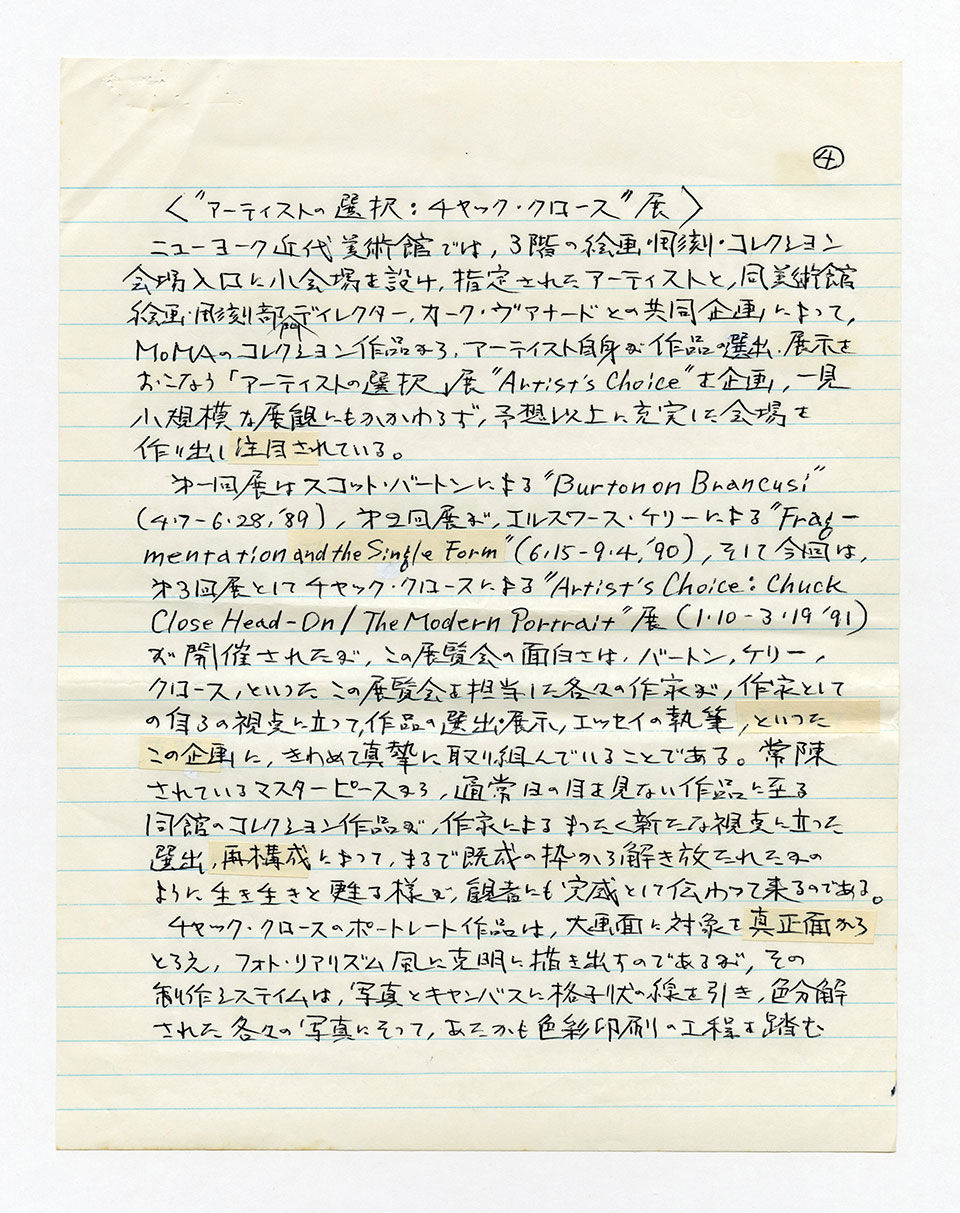 ④
〈"アーティストの選択：チャック・クロース"展〉
ニューヨーク近代美術館では，3階の絵画・彫刻・コレクション
会場入口に小会場を設け，指定されたアーティストと，同美術館
絵画・彫刻部門ディレクター，カーク・ヴァナードとの共同企画によって，
MoMAのコレクション作品から，アーティスト自身が作品の選出，展示を
おこなう「アーティストの選択」展"Artist's Choice"を企画，一見
小規模な展観にもかかわらず，予想以上に充実した会場を
作り出し注目されている。
第一回展はスコット・バートンによる"Burton on Brancusi"
(4・7-6・28,'89)，第2回展が，エルスワース・ケリーによる"Frag-
mentation and the Single Form"(6・15-9・4,'90)，そして今回は，
第3回展としてチャック・クロースによる"Artist's Choice: Chuck
Close Head-On/The Modern Portrait"展(1・10-3・19'91)
が開催されたが，この展覧会の面白さは，バートン，ケリー，
クロース，といったこの展覧会を担当した各々の作家が，作家として
の自らの視点に立って，作品の選出，展示，エッセイの執筆，といった
この企画に，きわめて真摯に取り組んでいることである。常陳
されているマスターピースから，通常日の目を見ない作品に至る
同館のコレクション作品が，作家によるまったく新たな視点に立った
選出，再構成によって，まるで既成の枠から解き放たれたかの
ように生き生きと甦る様が，観者にも実感として伝わって来るのである。
チャック・クロースのポートレート作品は，大画面に対象を真正面から
とらえ，フォト・リアリズム風に克明に描き出すのであるが，その
制作システィムは，写真とキャンバスに格子状の線を引き，色分解
された各々の写真にそって，あたかも色彩印刷の工程を踏む